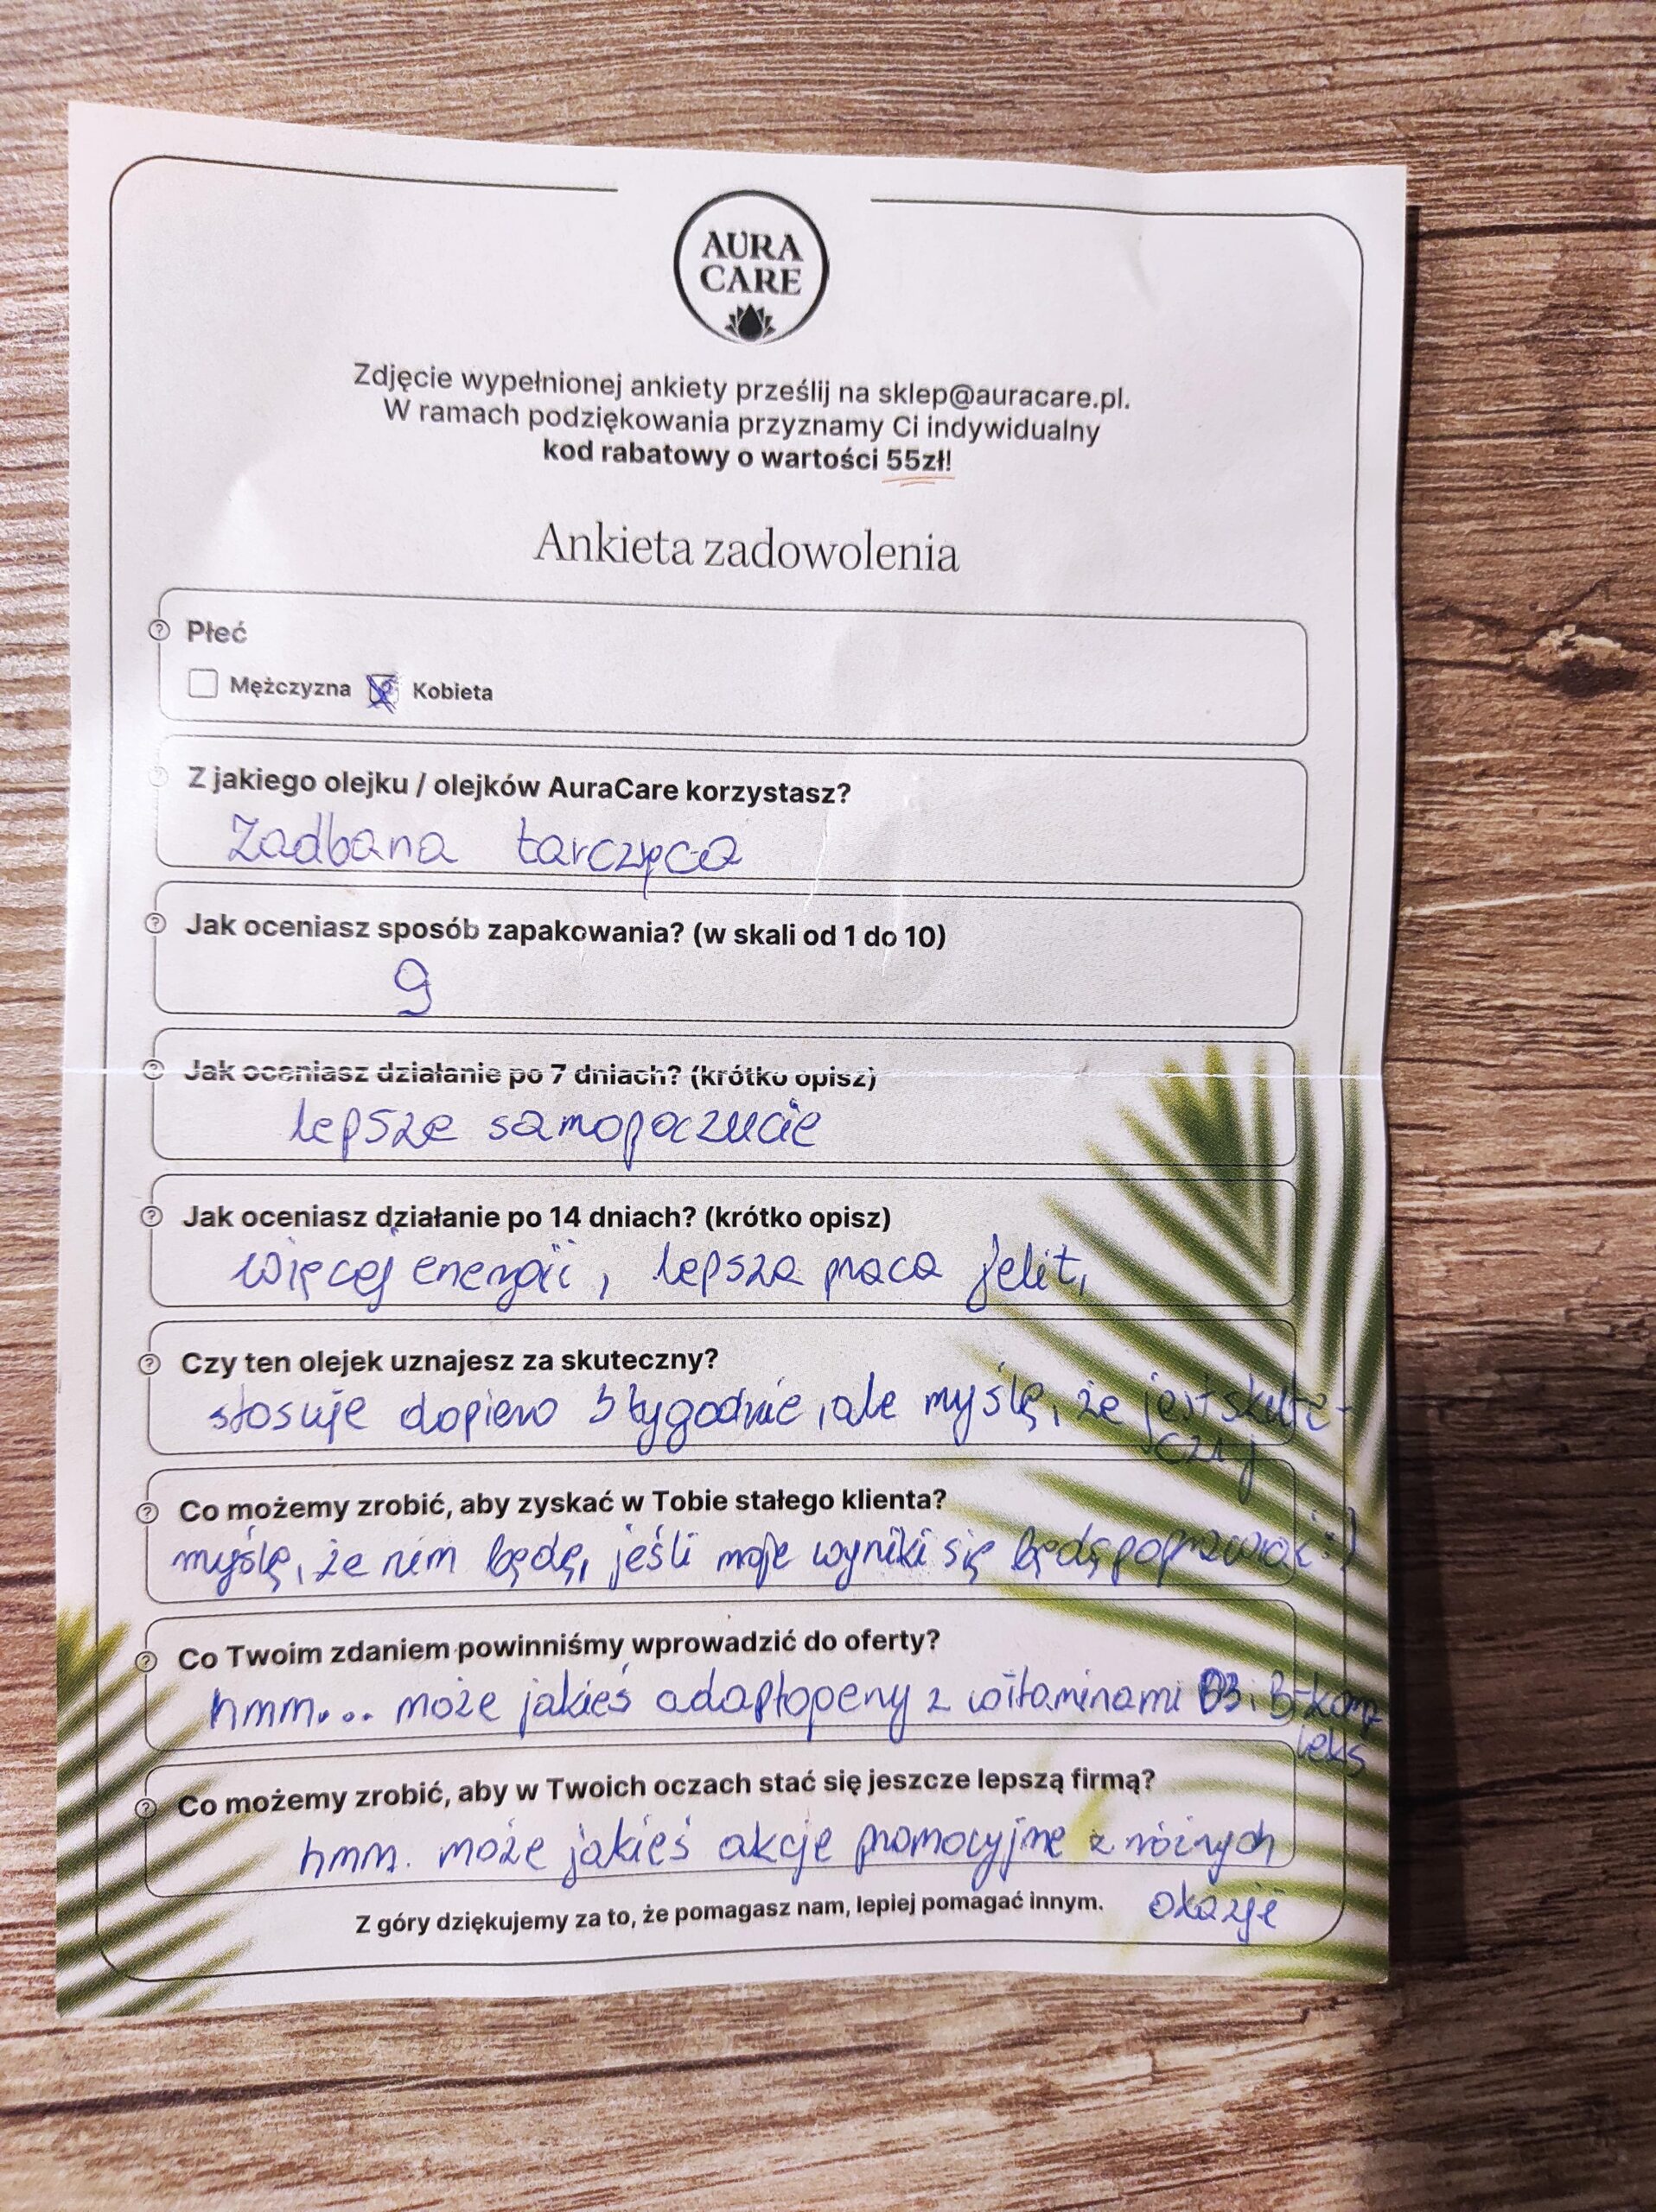 AURA
CARE
Zdjęcie wypełnionej ankiety prześlij na sklep@auracare.pl.
W ramach podziękowania przyznamy Ci indywidualny
kod rabatowy o wartości 55zł!
Ankieta zadowolenia
Płeć
Mężczyzna Kobieta
Z jakiego olejku / olejków AuraCare korzystasz?
Zadbana tarczyca
Jak oceniasz sposób zapakowania? (w skali od 1 do 10)
9
Jak oceniasz działanie po 7 dniach? (krótko opisz)
lepsze samopoczucie
Jak oceniasz działanie po 14 dniach? (krótko opisz)
więcej energii, lepsza praca jelit,
Czy ten olejek uznajesz za skuteczny?
stosuje dopiero 3 tygodnie, ale myślę, że jest skute-
czny
Co możemy zrobić, aby zyskać w Tobie stałego klienta?
myślę, że nim będę, jeśli moje wyniki się będą poprawiać :)
Co Twoim zdaniem powinniśmy wprowadzić do oferty?
hmm... może jakieś adaptopeny z witaminami D3 i B-komp
leks
Co możemy zrobić, aby w Twoich oczach stać się jeszcze lepszą firmą?
hmm. może jakieś akcje promocyjne z różnych
okazji
Z góry dziękujemy za to, że pomagasz nam, lepiej pomagać innym.